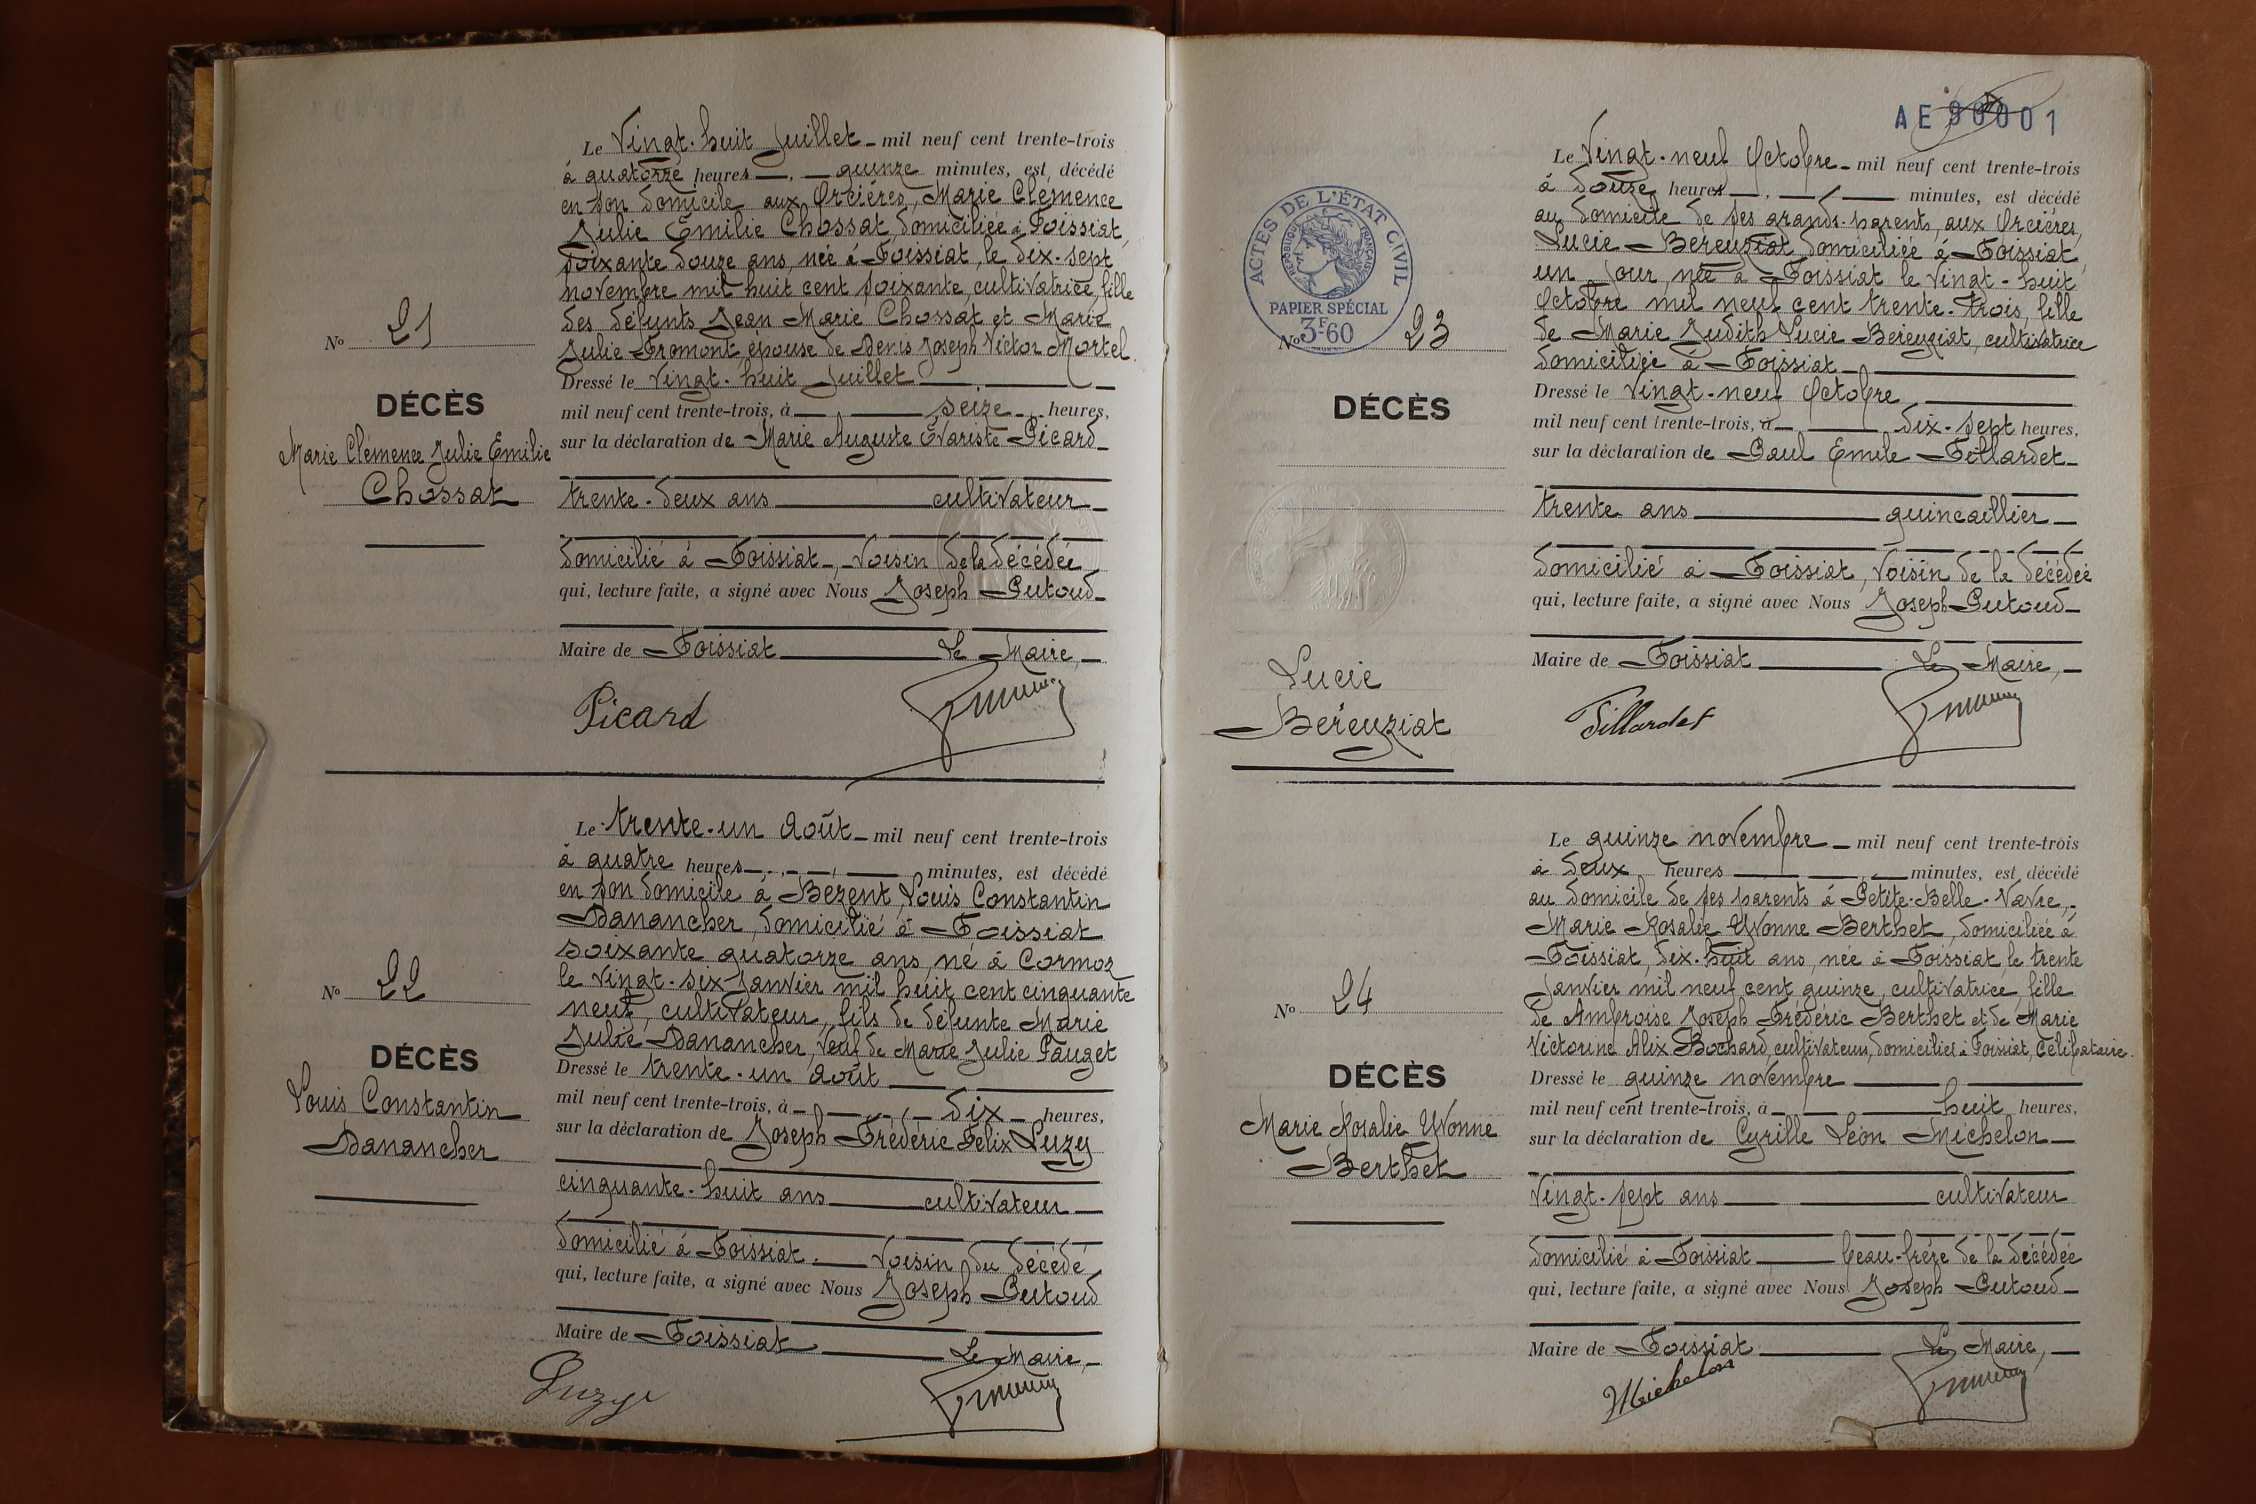 Le Vingt-huit Juillet mil neuf cent trente-trois
à quatorze heures quinze minutes, est décédé
en son domicile aux Orcières, Marie Clémence
Julie Emilie Chossat, domiciliée à Foissiat,
soixante douze ans, née à Foissiat, le dix-sept
novembre mil huit cent soixante, cultivatrice, fille
des défunts Jean Marie Chossat et Marie
Julie Fromont, épouse de Denis Joseph Victor Mortel.
No 21
DÉCÈS
Marie Clémence Julie Emilie
Chossat
Dressé le vingt-huit Juillet
mil neuf cent trente-trois, à seize heures,
sur la déclaration de Marie Auguste Evariste Picard
trente-deux ans cultivateur
domicilié à Foissiat, voisin de la décédée
qui, lecture faite, a signé avec Nous Joseph Putoud
Maire de Foissiat Le Maire,
Picard
Le trente-un Août mil neuf cent trente-trois
à quatre heures minutes, est décédé
en son domicile à Bezent, Louis Constantin
Danancher, domicilié à Foissiat
soixante quatorze ans, né à Cormoz
le vingt-six Janvier mil huit cent cinquante
neuf, cultivateur, fils de défunte Marie
Julie Danancher, veuf de Marie Julie Pauget
No 22
DÉCÈS
Louis Constantin
Danancher
Dressé le trente-un Août
mil neuf cent trente-trois, à dix heures,
sur la déclaration de Joseph Frédéric Félix Luzy
cinquante-huit ans cultivateur
domicilié à Foissiat. voisin du décédé
qui, lecture faite, a signé avec Nous Joseph Putoud
Maire de Foissiat Le Maire,
Luzy
AE 90001
Le Vingt-neuf Octobre mil neuf cent trente-trois
à douze heures minutes, est décédé
au domicile de ses grands-parents, aux Orcières,
Lucie Bereyziat, domiciliée à Foissiat,
un jour, née à Foissiat le vingt-huit
Octobre mil neuf cent trente-trois, fille
de Marie Judith Lucie Bereyziat, cultivatrice
domiciliée à Foissiat
ACTES DE L'ÉTAT CIVIL
RÉPUBLIQUE FRANÇAISE
PAPIER SPÉCIAL
3F60
No 23
DÉCÈS
Lucie
Bereyziat
Dressé le vingt-neuf Octobre
mil neuf cent trente-trois, à dix-sept heures,
sur la déclaration de Paul Emile Tillardet
trente ans quincaillier
domicilié à Foissiat, voisin de la décédée
qui, lecture faite, a signé avec Nous Joseph Putoud
Maire de Foissiat Le Maire,
Tillardet
Le quinze novembre mil neuf cent trente-trois
à deux heures minutes, est décédé
au domicile de ses parents à Petite-Belle-Vavre,
Marie Rosalie Yvonne Berthet, domiciliée à
Foissiat, dix-huit ans, née à Foissiat, le trente
Janvier mil neuf cent quinze, cultivatrice, fille
de Ambroise Joseph Frédéric Berthet et de Marie
Victorine Alix Bochard, cultivateurs, domiciliés à Foissiat, Célibataire.
No 24
DÉCÈS
Marie Rosalie Yvonne
Berthet
Dressé le quinze novembre
mil neuf cent trente-trois, à huit heures,
sur la déclaration de Cyrille Léon Michelon
vingt-sept ans cultivateur
domicilié à Foissiat beau-frère de la décédée
qui, lecture faite, a signé avec Nous Joseph Putoud
Maire de Foissiat Le Maire,
Michelon